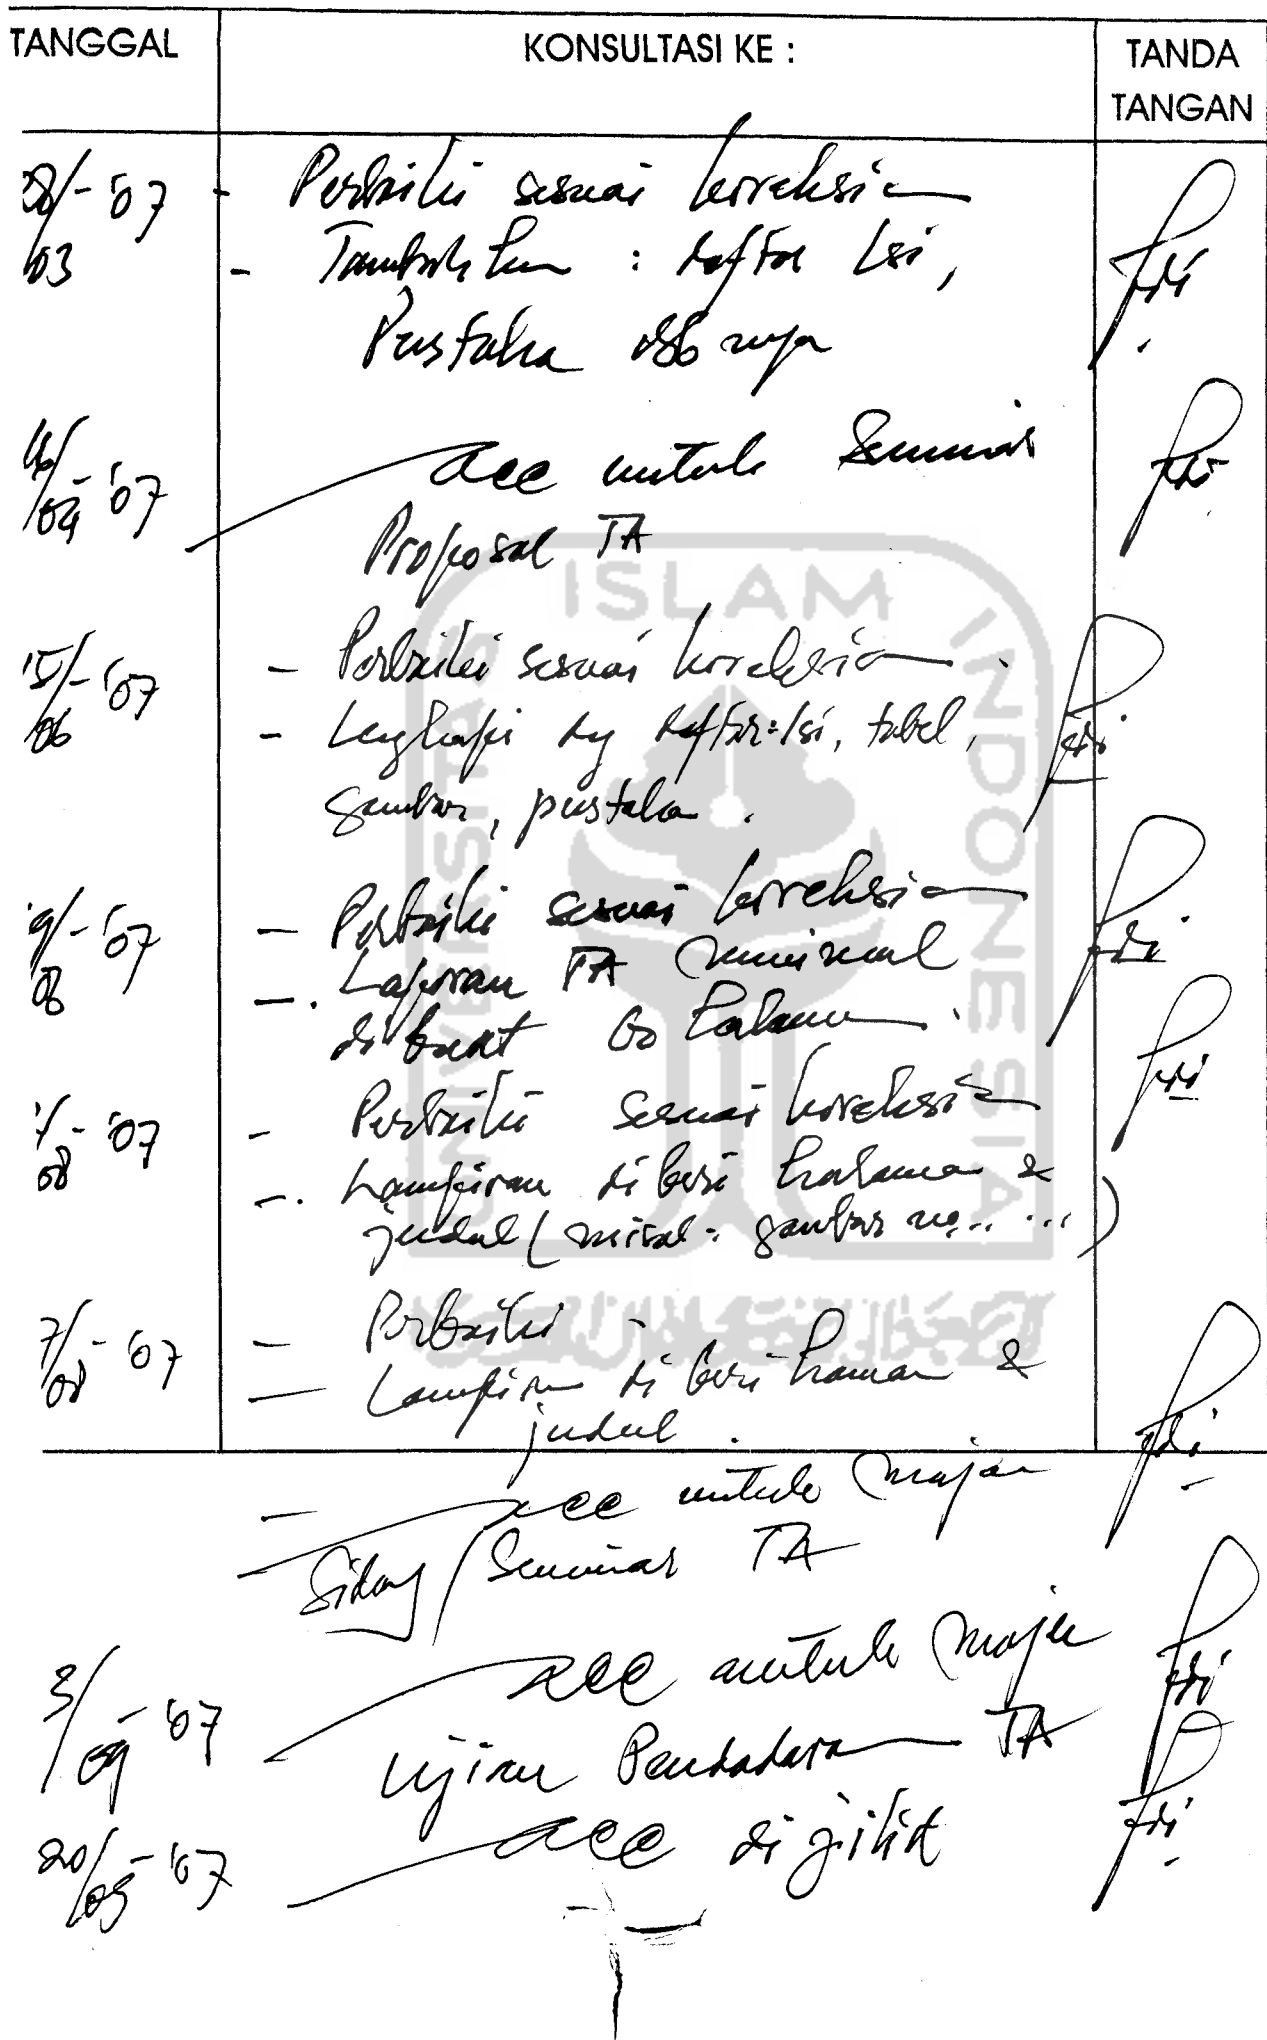 TANGGAL KONSULTASI KE : TANDA TANGAN
08/03 - '07 - Perbaiki sesuai koreksian
- Tambahkan : daftar Isi,
Pustaka dsb nya
16/04 - '07 acc untuk Seminar
Proposal TA
15/06 - '07 - Perbaiki sesuai koreksian.
- Lengkapi dg daftar: Isi, tabel,
gambar, pustaka.
/08 - '07 - Perbaiki sesuai koreksian
-. Laporan TA minimal
di buat 60 halaman.
/08 - '07 - Perbaiki sesuai koreksian
-. Lampiran di beri halaman &
judul (misal: gambar no.. ...)
7/08 - '07 - Perbaiki
- Lampiran di beri haman &
judul.
- acc untuk maju
Sidang/Seminar TA
3/09 - '07 - acc untuk maju
Ujian Pendadaran TA
20/09 - '07 - acc di jilid
UNIVERSITAS ISLAM INDONESIA